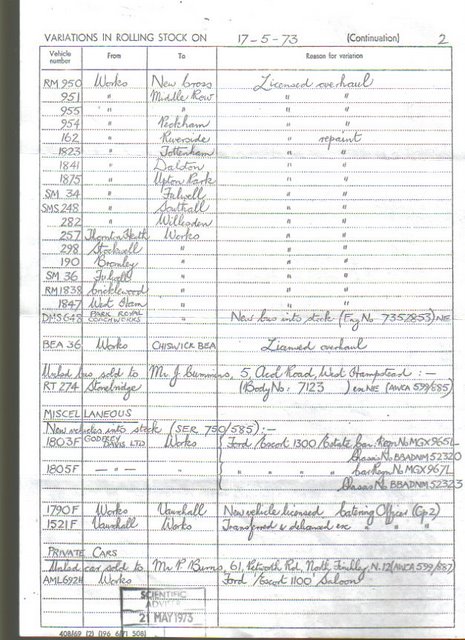 VARIATIONS IN ROLLING STOCK ON 17-5-73 (Continuation) 2
Vehicle number From To Reason for variation
RM 950 Works New Cross Licensed overhaul
951 " Middle Row " "
955 " " " "
954 " Peckham " "
162 " Riverside " repaint
1823 " Tottenham " "
1841 " Dalston " "
1875 " Upton Park " "
SM 34 " Fulwell " "
SMS 248 " Southall " "
282 " Willesden " "
257 Thornton Heath Works " "
298 Stockwell " " "
190 Bromley " " "
SM 36 Fulwell " " "
RM 1838 Cricklewood " " "
1847 West Ham " " "
DMS 648 PARK ROYAL COACHWORKS " New bus into stock (Eng No 7352853) NE
BEA 36 Works CHISWICK BEA Licensed overhaul
Unlic'd bus sold to Mr J Cummins, 5, Acol Road, West Hampstead :—
RT 274 Stonebridge (Body No: 7123 ) ex NE (AWCA 599/585)
MISCELLANEOUS
New vehicles into stock (SER 750/585):—
1803F GODFREY DAVIS LTD Works Ford 'Escort 1300' Estate car Regn No MGX 965L
Chassis No BBADNM 52320
1805F — " — " " car Regn No MGX 967L
Chassis No BBADNM 52323
1790F Works Vauxhall New vehicle licensed Catering Officer (Gp 2)
1521F Vauxhall Works Transferred & delicensed ex " " "
PRIVATE CARS
Unlic'd car sold to Mr P Burns, 61, Petworth Rd, North Finchley, N.12 (AWCA 599/587)
AML 692H Works Ford 'Escort 1100' Saloon
SCIENTIFIC
ADVISER
21 MAY 1973
408/69 (2) (196 6/71 508)